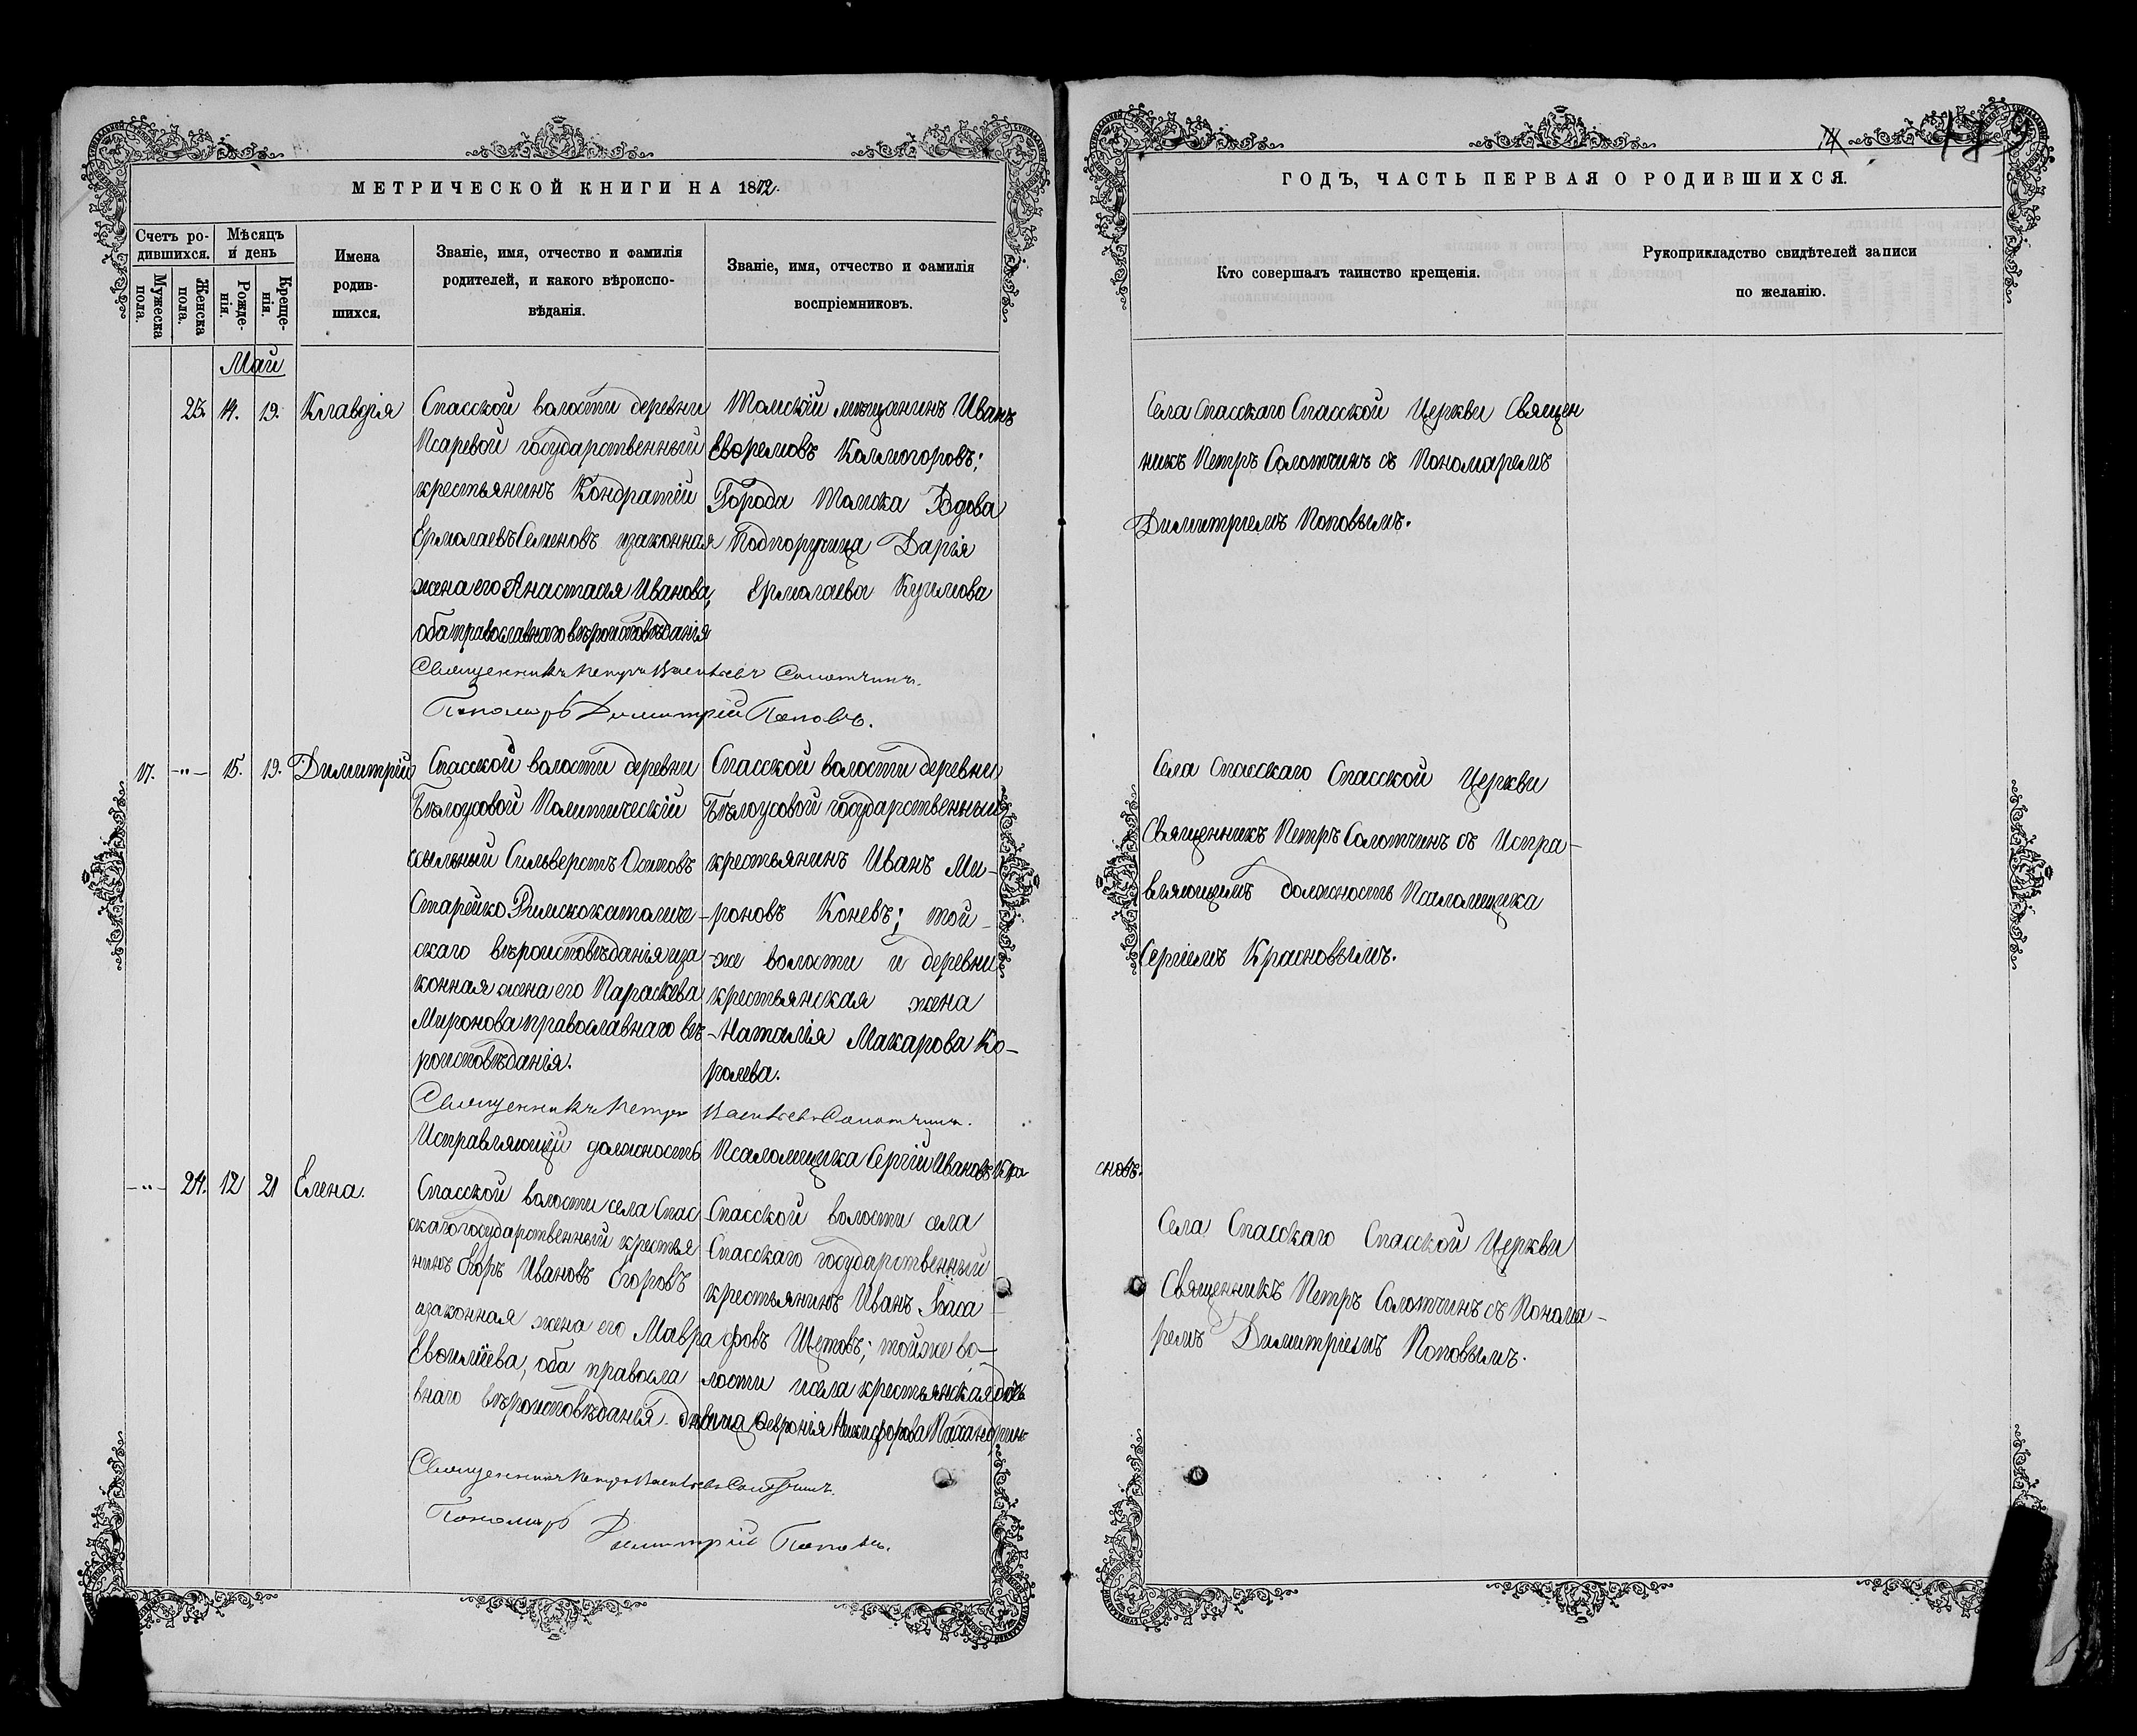 МЕТРИЧЕСКОЙ КНИГИ НА 1872.
Счетъ ро-
дившихся.
Мѣсяцъ
и день
Мужеска
пола.
Женска
пола.
Рожде-
нія.
Креще-
нія.
Имена
родив-
шихся.
Званіе, имя, отчество и фамилія
родителей, и какого вѣроиспо-
вѣданія.
Званіе, имя, отчество и фамилія
воспріемниковъ.
Май
23. 14. 19. Клавдія
Спасской волости деревни
Псаревой государственный
крестьянинъ Кондратій
Ермолаевъ Семеновъ изаконная
жена его Анастасія Иванова,
оба православнаго вѣроисповѣданія
Томскій мѣщанинъ Иванъ
Евѳремовъ Колмогоровъ;
Города Томска Вдова
Подпоручица Дарія
Ермолаева
Священникъ Петръ Васильевъ Солотчинъ.
Пономарь Димитрій Поповъ.
17. -"- 15. 19. Димитрій
Спасской волости деревни
Бѣлоусовой Политическій
ссыльный Сильверстъ Осиповъ
Старейко Римскокатоличе-
скаго вѣроисповѣданія иза
конная жена его Параскева
Миронова православнаго вѣ-
роисповѣданія.
Спасской волости деревни
Бѣлоусовой государственный
крестьянинъ Иванъ Ми-
роновъ Коневъ; той-
же волости и деревни
крестьянская жена
Наталія Макарова Ко-
ролева.
Священникъ Петръ Васильевъ Солотчинъ.
Исправляющій должность Псаломщика Сергій Ивановъ Кра
сновъ.
-"- 24. 12 21 Елена.
Спасской волости села Спас
скаго государственный крестья
нинъ Егоръ Ивановъ Егоровъ
изаконная жена его Мавра
Евѳиміева, оба правосла
внаго вѣроисповѣданія.
Спасской волости села
Спасскаго государственный
крестьянинъ Иванъ
Щетовъ; тойже во-
лости исела крестьянская дочь
дѣвица Ѳевронія Никифорова
Священникъ Петръ Васильевъ Солотчинъ.
Пономарь Димитрій Поповъ.
ГОДЪ, ЧАСТЬ ПЕРВАЯ О РОДИВШИХСЯ.
Кто совершалъ таинство крещенія.
Рукоприкладство свидѣтелей записи
по желанію.
Села Спасскаго Спасской Церкви Священ
никъ Петръ Солотчинъ съ Пономаремъ
Димитріемъ Поповымъ.
Села Спасскаго Спасской Церкви
Священникъ Петръ Солотчинъ съ Испра-
вляющимъ должность Псаломщика
Сергіемъ Красновымъ.
Села Спасскаго Спасской Церкви
Священникъ Петръ Солотчинъ съ Понома-
ремъ Димитріемъ Поповымъ.